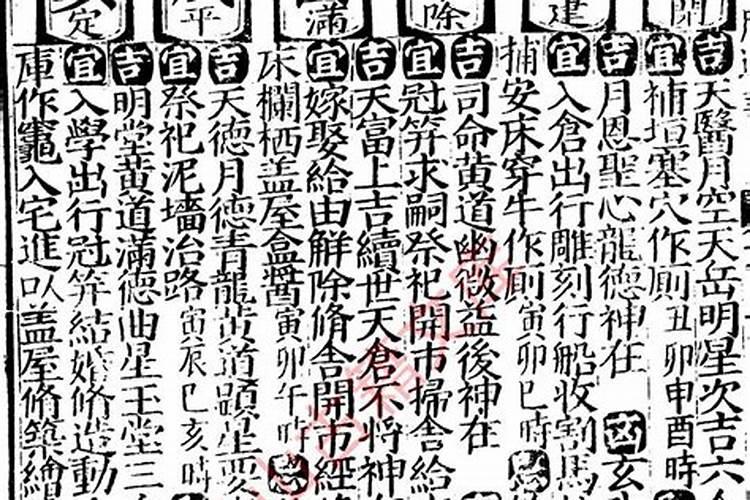 閉
吉天醫月空天岳明星次吉六
宜補垣塞穴作厠丑卯申酉時
建
吉月恩聖心龍德神在 凶玄
宜入倉出行雕刻行船收割馬
捕安床穿牛作厠寅卯巳時
除
吉司命黃道幽微益後神在
宜冠笄求嗣祭祀開市掃舍給
滿
吉天富上吉續世天倉不將神
宜嫁娶給由解除脩舍開市經
床欄栖盖屋盒醬寅卯午時
平
吉天德月德青龍黃道顕星要
宜祭祀泥墻治路寅辰巳亥時
定
吉明堂黃道滿德曲星玉堂三
宜入學出行冠笄結婚脩造動
庫作竈入宅進以盖屋脩築繒